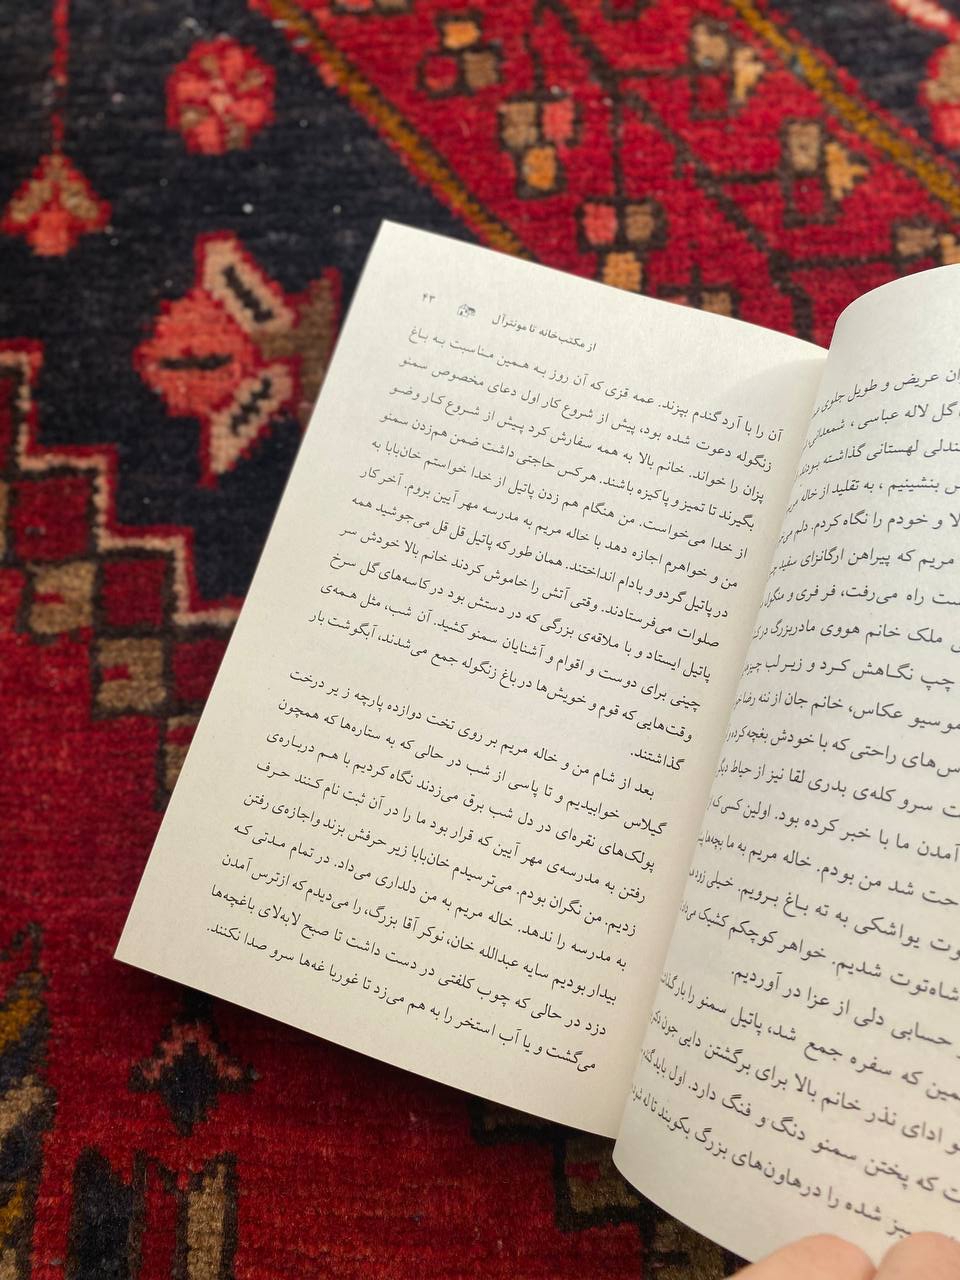 عریض و طویل جلوی
گل لاله عباسی ، شمعدانی
لهستانی گذاشته بودند
بنشینیم ، به تقلید از خاله مریم
و خودم را نگاه کردم. دلم
مریم که پیراهن ارگانزای سفید
راه می‌رفت، فر فری و
ملک خانم هووی مادربزرگ
چپ نگاهش کرد و زیر لب
موسیو عکاس، خانم جان از ننه رضا
راحتی که با خودش بغچه کرده
سرو کله‌ی بدری لقا نیز از حیاط
آمدن ما با خبر کرده بود. اولین کسی که
شد من بودم. خاله مریم به ما بچه‌ها
یواشکی به ته باغ برویم. خیلی زود
شاه‌توت شدیم. خواهر کوچکم کشیک
حسابی دلی از عزا در آوردیم.
که سفره جمع شد، پاتیل سمنو را
ادای نذر خانم بالا برای برگشتن دایی جون
که پختن سمنو دنگ و فنگ دارد. اول باید
شده را درهاون‌های بزرگ بکوبند تا له
از مکتب‌خانه تا مونترآل ۴۳
آن را با آرد گندم بپزند. عمه قزی که آن روز به همین مناسبت به باغ
زنگوله دعوت شده بود، پیش از شروع کار اول دعای مخصوص سمنو
پزان را خواند. خانم بالا به همه سفارش کرد پیش از شروع کار وضو
بگیرند تا تمیز و پاکیزه باشند. هرکس حاجتی داشت ضمن هم‌زدن سمنو
از خدا می‌خواست. من هنگام هم زدن پاتیل از خدا خواستم خان‌بابا به
من و خواهرم اجازه دهد با خاله مریم به مدرسه مهر آیین بروم. آخر کار
در پاتیل گردو و بادام انداختند. همان طور که پاتیل قل قل می‌جوشید همه
صلوات می‌فرستادند. وقتی آتش را خاموش کردند خانم بالا خودش سر
پاتیل ایستاد و با ملاقه‌ی بزرگی که در دستش بود در کاسه‌های گل سرخ
چینی برای دوست و اقوام و آشنایان سمنو کشید. آن شب، مثل همه‌ی
وقت‌هایی که قوم و خویش‌ها در باغ زنگوله جمع می‌شدند، آبگوشت بار
گذاشتند.
بعد از شام من و خاله مریم بر روی تخت دوازده پارچه زیر درخت
گیلاس خوابیدیم و تا پاسی از شب در حالی که به ستاره‌ها که همچون
پولک‌های نقره‌ای در دل شب برق می‌زدند نگاه کردیم با هم درباره‌ی
رفتن به مدرسه‌ی مهر آیین که قرار بود ما را در آن ثبت نام کنند حرف
زدیم. من نگران بودم. می‌ترسیدم خان‌بابا زیر حرفش بزند واجازه‌ی رفتن
به مدرسه را ندهد. خاله مریم به من دلداری می‌داد. در تمام مدتی که
بیدار بودیم سایه عبدالله خان، نوکر آقا بزرگ، را می‌دیدم که ازترس آمدن
دزد در حالی که چوب کلفتی در دست داشت تا صبح لابه‌لای باغچه‌ها
می‌گشت و یا آب استخر را به هم می‌زد تا غورباغه‌ها سرو صدا نکنند.